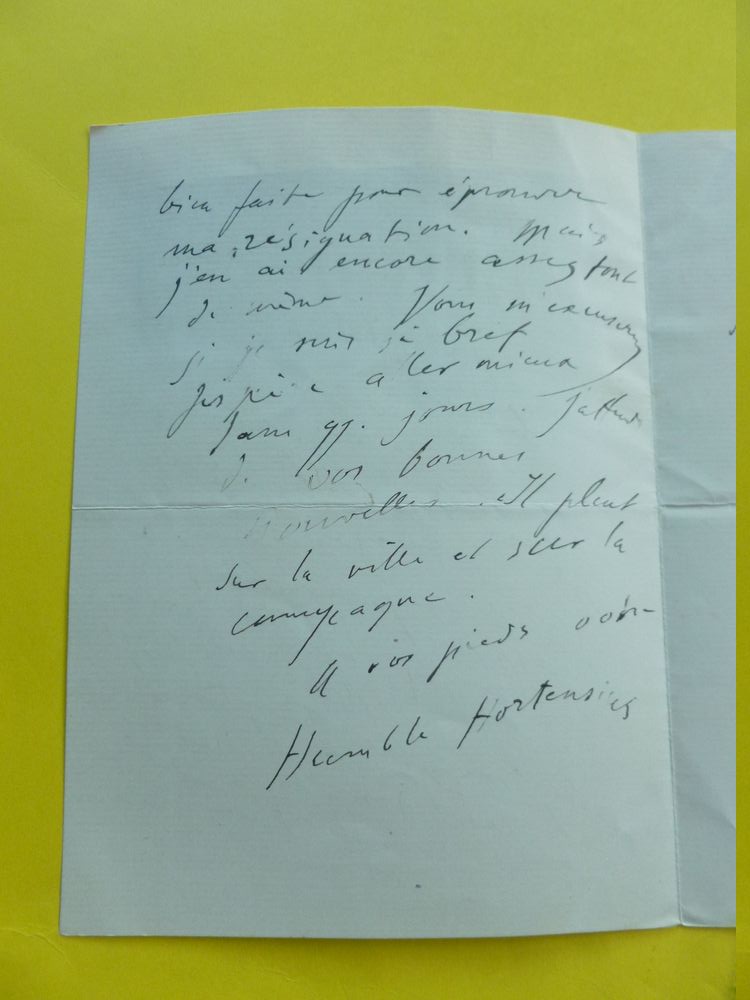 bien faite pour éprouver
ma résignation. Mais
j'en ai encore assez tout
de même. Vous m'excuserez
si je suis si bref
J'espère aller mieux
dans qq. jours. J'attends
de vos bonnes
nouvelles. Il pleut
sur la ville et sur la
campagne.
A vos pieds votre
Humble Hortensius